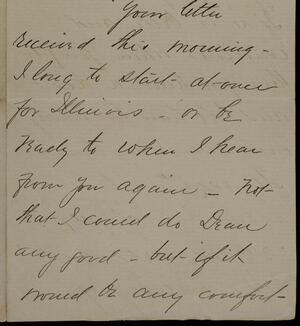 Your letter
received this morning -
I long to start - at once
for Illinois - or be
ready to when I hear
from you again - not
that I could do Dean
any good - but if it
would be any comfort -